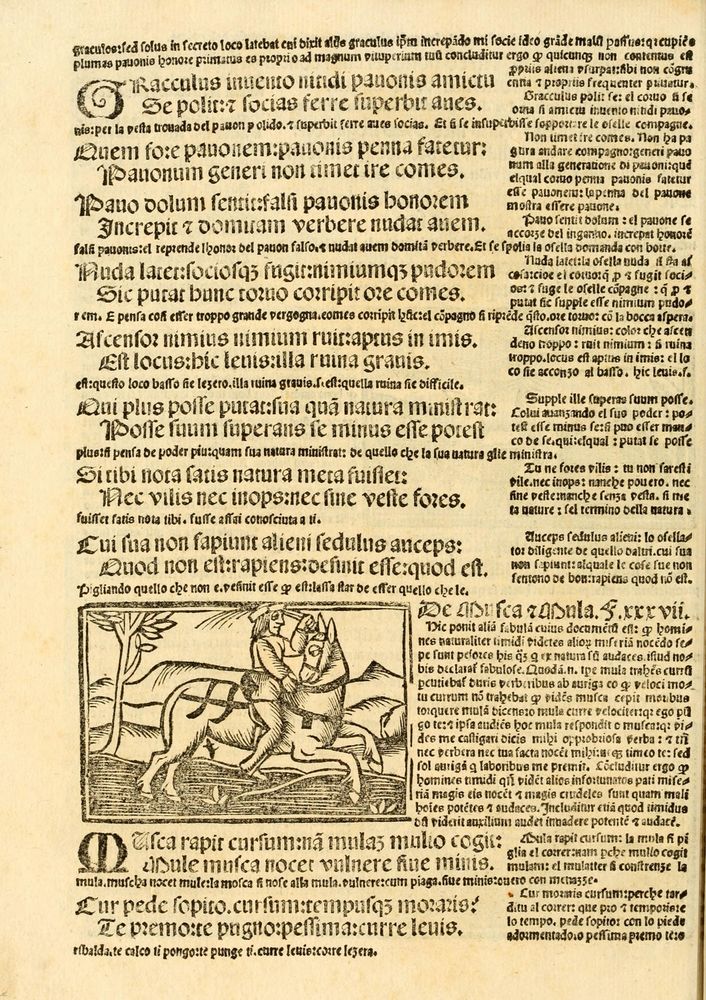 graculos: sed solus in secreto loco latebat cui dixit alius graculus ipm increpãdo mi socie ideo grãde malũ passus: q; cupiẽs
plumas pauonis honore priuatus es proprio ad magnum vituperium tuũ concluditur ergo ꝙ quicunqȝ non contentus est
GRacculus inuento nitidi pauonis amictu
Se polit: ⁊ socias ferre superbit aues.
nis: per la vesta trouada del pauon polido. ⁊ superbit ferre aues socias. Et si se insuperbisse soppottare le oselle compagne.
Quem fore pauonem: pauonis penna fatetur:
Pauonum generi non timet ire comes.
Pauo dolum sentit: falsi pauonis honorem
Increpit ⁊ domitam verbere nudat auem.
falsi pauonis: el reprende lhonor del pauon falso. ⁊ nudat auem domitã verbere. Et se spolia la osella domanda con botte.
Nuda latet: sociosqȝ fugit: nimiumqȝ pudorem
Sic putat hunc toruo corripit ore comes.
rem. E pensa cosi esser troppo grande vergogna. comes corripit hũc: el cõpagno si riprẽde q̃sto. ore toruo: cõ la bocca aspera.
Ascensor nimius nimium ruit: aptus in imis.
Est locus: hic leuis: illa ruina grauis.
est: questo loco basso sie lezero. illa ruina grauis. s. est: quella ruina sie difficile.
Qui plus posse putat: sua quã natura ministrat:
Posse suum superans se minus esse potest
plus: si pensa de poder piu: quam sua natura ministrat: de quello che la sua natura glie ministra.
Si tibi nota satis natura meta fuisset:
Nec vilis nec inops: nec sine veste fores.
fuisset satis nota tibi. fusse assai conosciuta a ti.
Cui sua non sapiunt alieni sedulus auceps:
Quod non est: rapiens: desinit esse: quod est.
Pigliando quello che non e. desinit esse ꝙ est: lassa star de esser quello che le.
ꝓpriis aliena vsurpat: sibi non cõgru
entia ⁊ propriis frequenter priuatur.
Gracculus polit se: el coruo si se
orna si amictu inuento nitidi pauo-
Non timet ire comes. Non ha pa
gura andare compagno: generi pauo
num alla generatione di pauoni: qué
el qual coruo penna pauonis fatetur
esse pauonem: la penna del pauone
mostra essere pauone.
Pauo sentit dolum: el pauone se
accorze del inganno. increpat honorẽ
Nuda latet: la osella nuda si sta as
cosa: cioe el coruo: q̃ ꝙ ⁊ fugit soci-
os: ⁊ fuge le oselle cõpagne: q̃ ꝙ ⁊
putat sic supple esse nimium pudo-
Ascensor nimius: color che ascen
deno troppo: ruit nimium: si ruina
troppo. locus est aptus in imis: el lo
co sie acconzo al basso. hic leuis. s.
Supple ille superas suum posse.
Colui auanzando el suo poder: po-
test esse minus se: si puo esser man-
co de se. qui: elqual: putat se posse
Tu ne fores vilis: tu non saresti
vile. nec inops: nanche pouero. nec
sine veste: manche senza vesta. si me
ta nature: sel termino della natura.
Auceps sedulus alieni: lo osella-
tor diligente de quello daltri. cui sua
non sapiunt: alquale le cose sue non
sentono de bon: rapiens quod nõ est.
De Musca ⁊ Mula. F. xxxvii.
Hic ponit aliã fabulã cuius documẽtũ est: ꝙ homi-
nes naturaliter timidi videtes alioȝ miseriã nocẽdo se-
pe sunt peiores his q̃ȝ q ex natura sũt audaces. istud no-
bis declarat fabulose. Quodã. n. tpe mula trahẽs currũ
patiebat duris verberibus ab auriga eo ꝙ veloci mo-
tu currum nõ trahebat ꝙ vidẽs musca cepit motibus
torquere mulã dicens: o mula curre velociter: ꝗ; ego pũ
go te: ⁊ ipsa audiẽs hoc mula respondit o musca: q: vi-
des me castigari dicis mihi opprobriosa verba: ⁊ tñ
nec verbera nec tua facta nocẽt mihi: naq̃; timeo te: sed
sol aurigã q̃ laboribus me premit. Cõcluditur ergo ꝙ
homines timidi qñ vidẽt alios infortunatos pati mise-
riã magis eis nocẽt ⁊ magis crudeles sunt quam mali
hoies potẽtes ⁊ audaces. Includitur etiã quod timidus
dũ viderit auxilium audet inuadere potentẽ ⁊ audacẽ.
MUsca rapit cursum: nã mulaȝ mulio cogit:
Mule musca nocet vulnere siue minis.
mula. muscha nocet mule: la mosca si nose alla mula. vulnere: cum piaga. siue minis: ouero con menazze.
Cur pede sopito. cursum: tempusqȝ moraris?
Te premo: te pugno: pessima: curre leuis.
risbalda. te calco ti pongo: te punge ti. curre leuis: corre lezera.
Mula rapit cursum: la mula si pi
glia el correr: nam perche mulio cogit
mulam: el mulatter si constrenze la
Cur moraris cursum: perche tar-
di tu al correr: que pro ⁊ temporis: e
lo tempo. pede sopito: con lo piede
adormentado: o pessima premo te: o